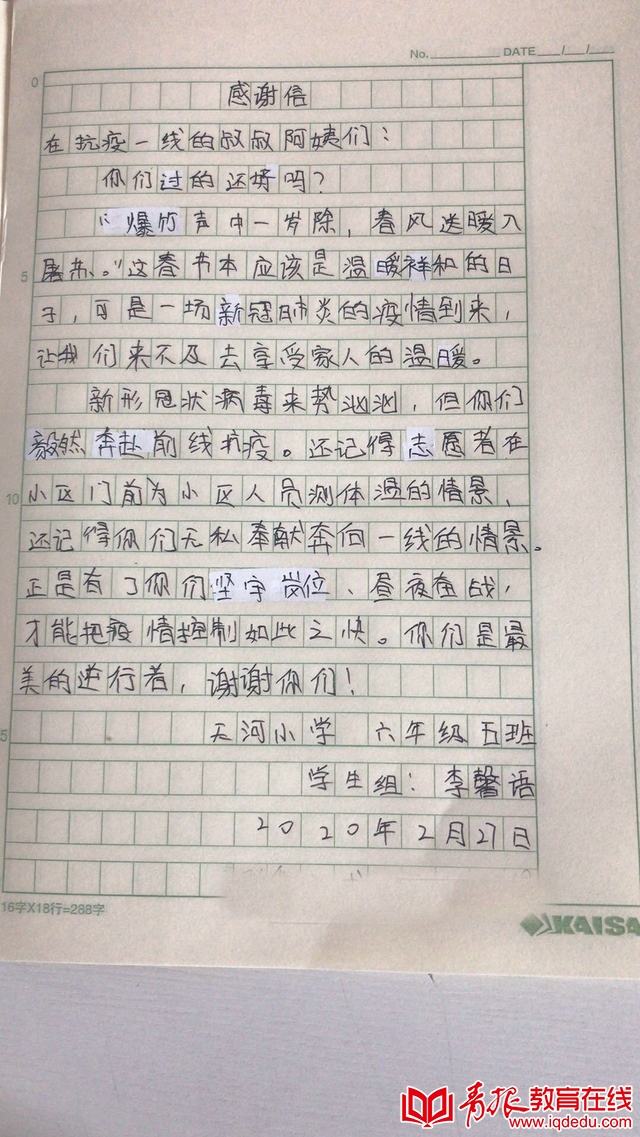 No. DATE / /
0
感谢信
在抗疫一线的叔叔阿姨们：
你们过的还好吗？
“爆竹声中一岁除，春风送暖入
5 屠苏。”这春节本应该是温暖祥和的日
子，可是一场新冠肺炎的疫情到来，
让我们来不及去享受家人的温暖。
新形冠状病毒来势汹汹，但你们
毅然奔赴前线抗疫。还记得志愿者在
10 小区门前为小区人员测体温的情景、
还记得你们无私奉献奔向一线的情景。
正是有了你们坚守岗位、昼夜奋战，
才能把疫情控制如此之快。你们是最
美的逆行者，谢谢你们！
5 天河小学 六年级五班
学生组：李馨语
2020年2月27日
16字X18行=288字
KAISA
青报教育在线
www.iqdedu.com